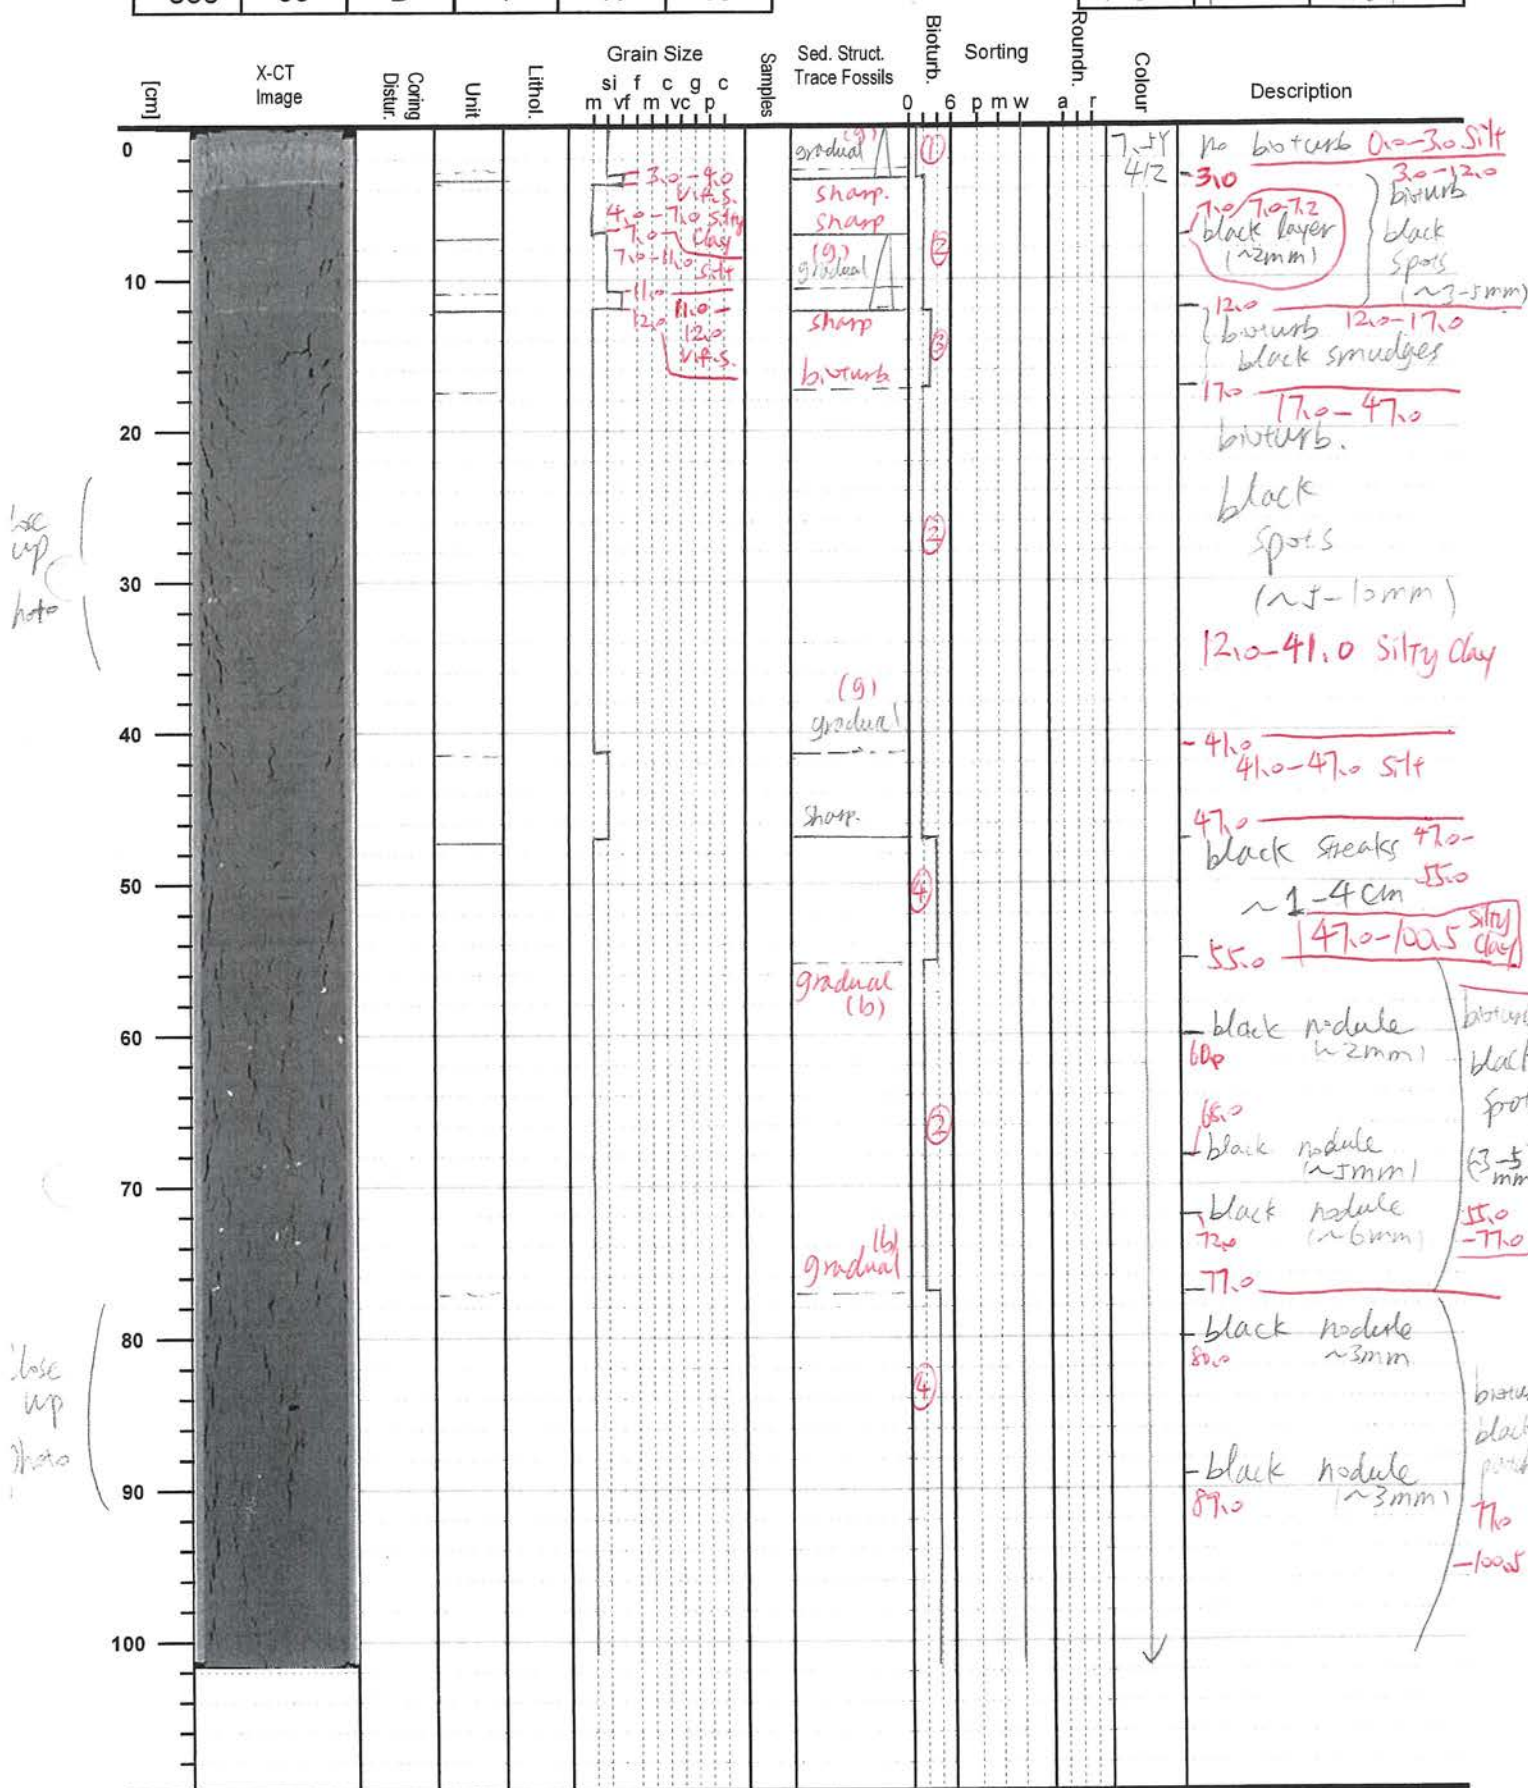 [cm]
X-CT
Image
Coring
Distur.
Unit
Lithol.
Grain Size
si f c g c
m vf m vc p
Samples
Sed. Struct.
Trace Fossils
Bioturb.
0 6
Sorting
p m w
Roundn.
a r
Colour
Description
0
10
20
30
40
50
60
70
80
90
100
up
up
3.0-4.0
v.f.s.
4.0-7.0 silty
clay
7.0
7.0-11.0
silt
11.0
11.0-
12.0
12.0
v.f.s.
(g)
gradual
sharp.
sharp
(g)
gradual
sharp
bioturb
(g)
gradual
sharp.
gradual
(b)
(b)
gradual
1
2
3
2
4
2
4
7.5Y
4/2
no bioturb 0.0-3.0 Silt
3.0
3.0-12.0
bioturb
black
spots
(~3-5mm)
7.0/7.0-7.2
black layer
(~2mm)
12.0
bioturb 12.0-17.0
black smudges
17.0
17.0-47.0
bioturb.
black
spots
(~5-10mm)
12.0-41.0 Silty Clay
41.0
41.0-47.0 Silt
47.0
black streaks 47.0-
55.0
~1-4cm
47.0-100.5 silty
clay
55.0
black nodule
(~2mm)
60.0
68.0
black nodule
(~5mm)
black nodule
(~6mm)
72.0
black
(3-5
mm
55.0
-77.0
77.0
black nodule
~3mm
80.0
black nodule
(~3mm)
89.0
black
77.0
-100.5